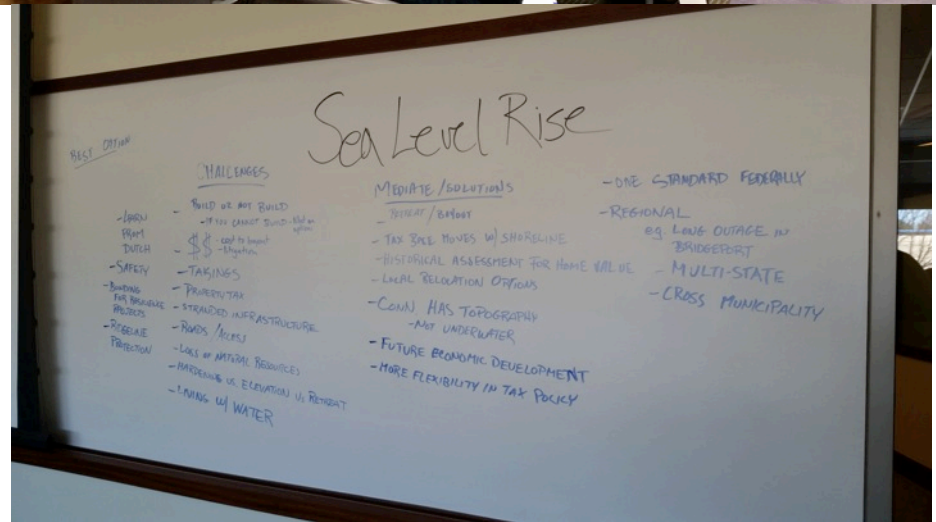 Sea Level Rise
BEST OPTION
- LEARN
FROM
DUTCH
- SAFETY
- BONDING
FOR RESILIENCE
PROJECTS
PROTECTION
CHALLENGES
- BUILD OR NOT BUILD
- IF YOU CANNOT BUILD -
- $$ - cost to buyout
- TAKINGS
- PROPERTY TAX
- STRANDED INFRASTRUCTURE
- ROADS / ACCESS
- LOSS OF NATURAL RESOURCES
- HARDENING VS. ELEVATION VS RETREAT
- LIVING W/ WATER
MEDIATE / SOLUTIONS
- RETREAT / BUYOUT
- TAX BASE MOVES W/ SHORELINE
- HISTORICAL ASSESSMENT FOR HOME VALUE
- LOCAL RELOCATION OPTIONS
- CONN. HAS TOPOGRAPHY
- NOT UNDERWATER
- FUTURE ECONOMIC DEVELOPMENT
- MORE FLEXIBILITY IN TAX POLICY
- ONE STANDARD FEDERALLY
- REGIONAL
eg. LONG OUTAGE IN
BRIDGEPORT
- MULTI-STATE
- CROSS MUNICIPALITY